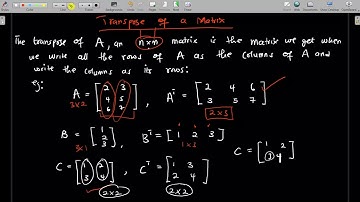 Transpose of a Matrix
The transpose of A, an n×m matrix is the matrix we get when
we write all the rows of A as the columns of A and
write the columns as its rows:
eg:
A = [2 3; 4 5; 6 7] , Aᵀ = [2 4 6; 3 5 7]
3×2 2×3
B = [1; 2; 3] , Bᵀ = [1 2 3]
3×1 1×3
C = [1 2; 3 4] , Cᵀ = [1 3; 2 4] C = [1 2; 3 4]
2×2 2×2